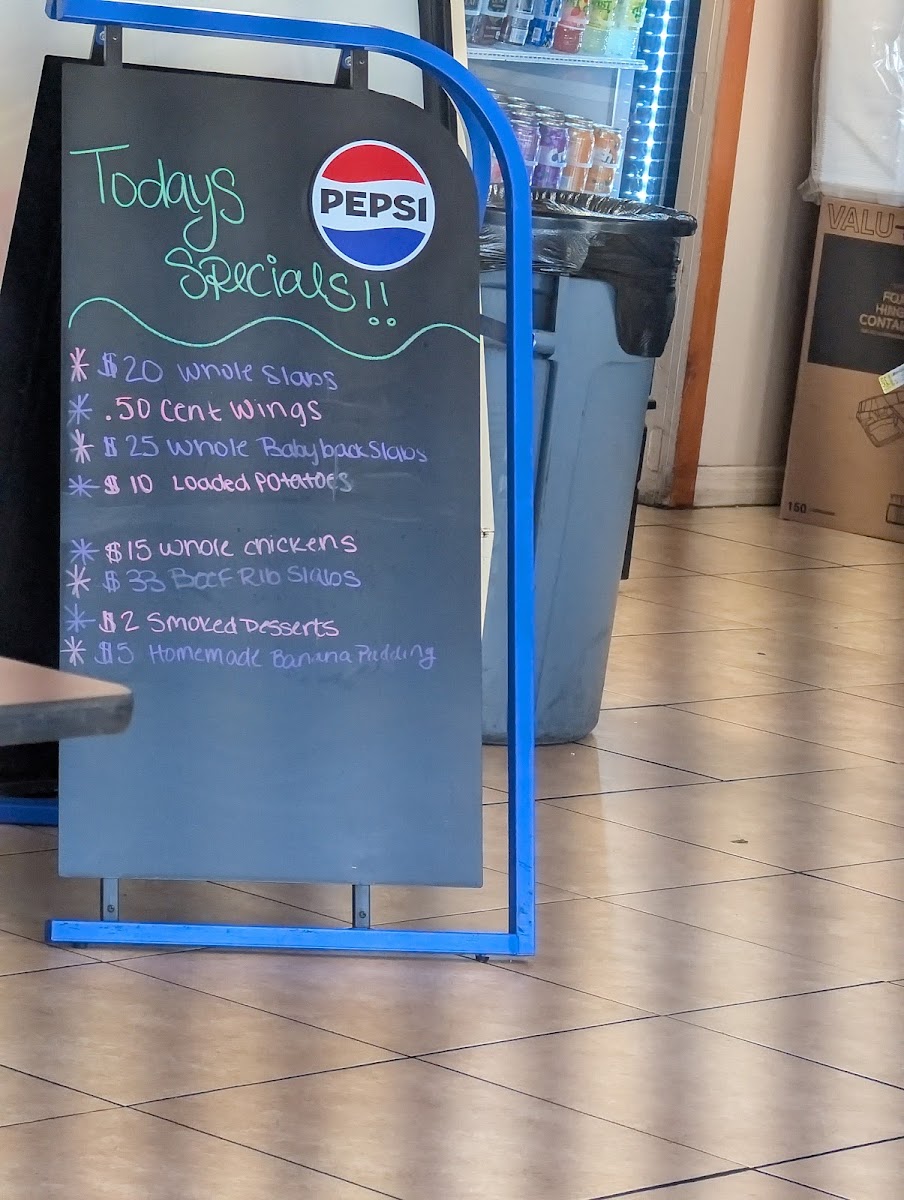 Todays
Specials!!
PEPSI
* $20 Whole Slabs
* .50 Cent Wings
* $25 Whole Babyback Slabs
* $10 Loaded Potatoes
* $15 Whole Chickens
* $33 Beef Rib Slabs
* $2 Smoked Desserts
* $5 Homemade Banana Pudding
VALU
HING
CONTA
150